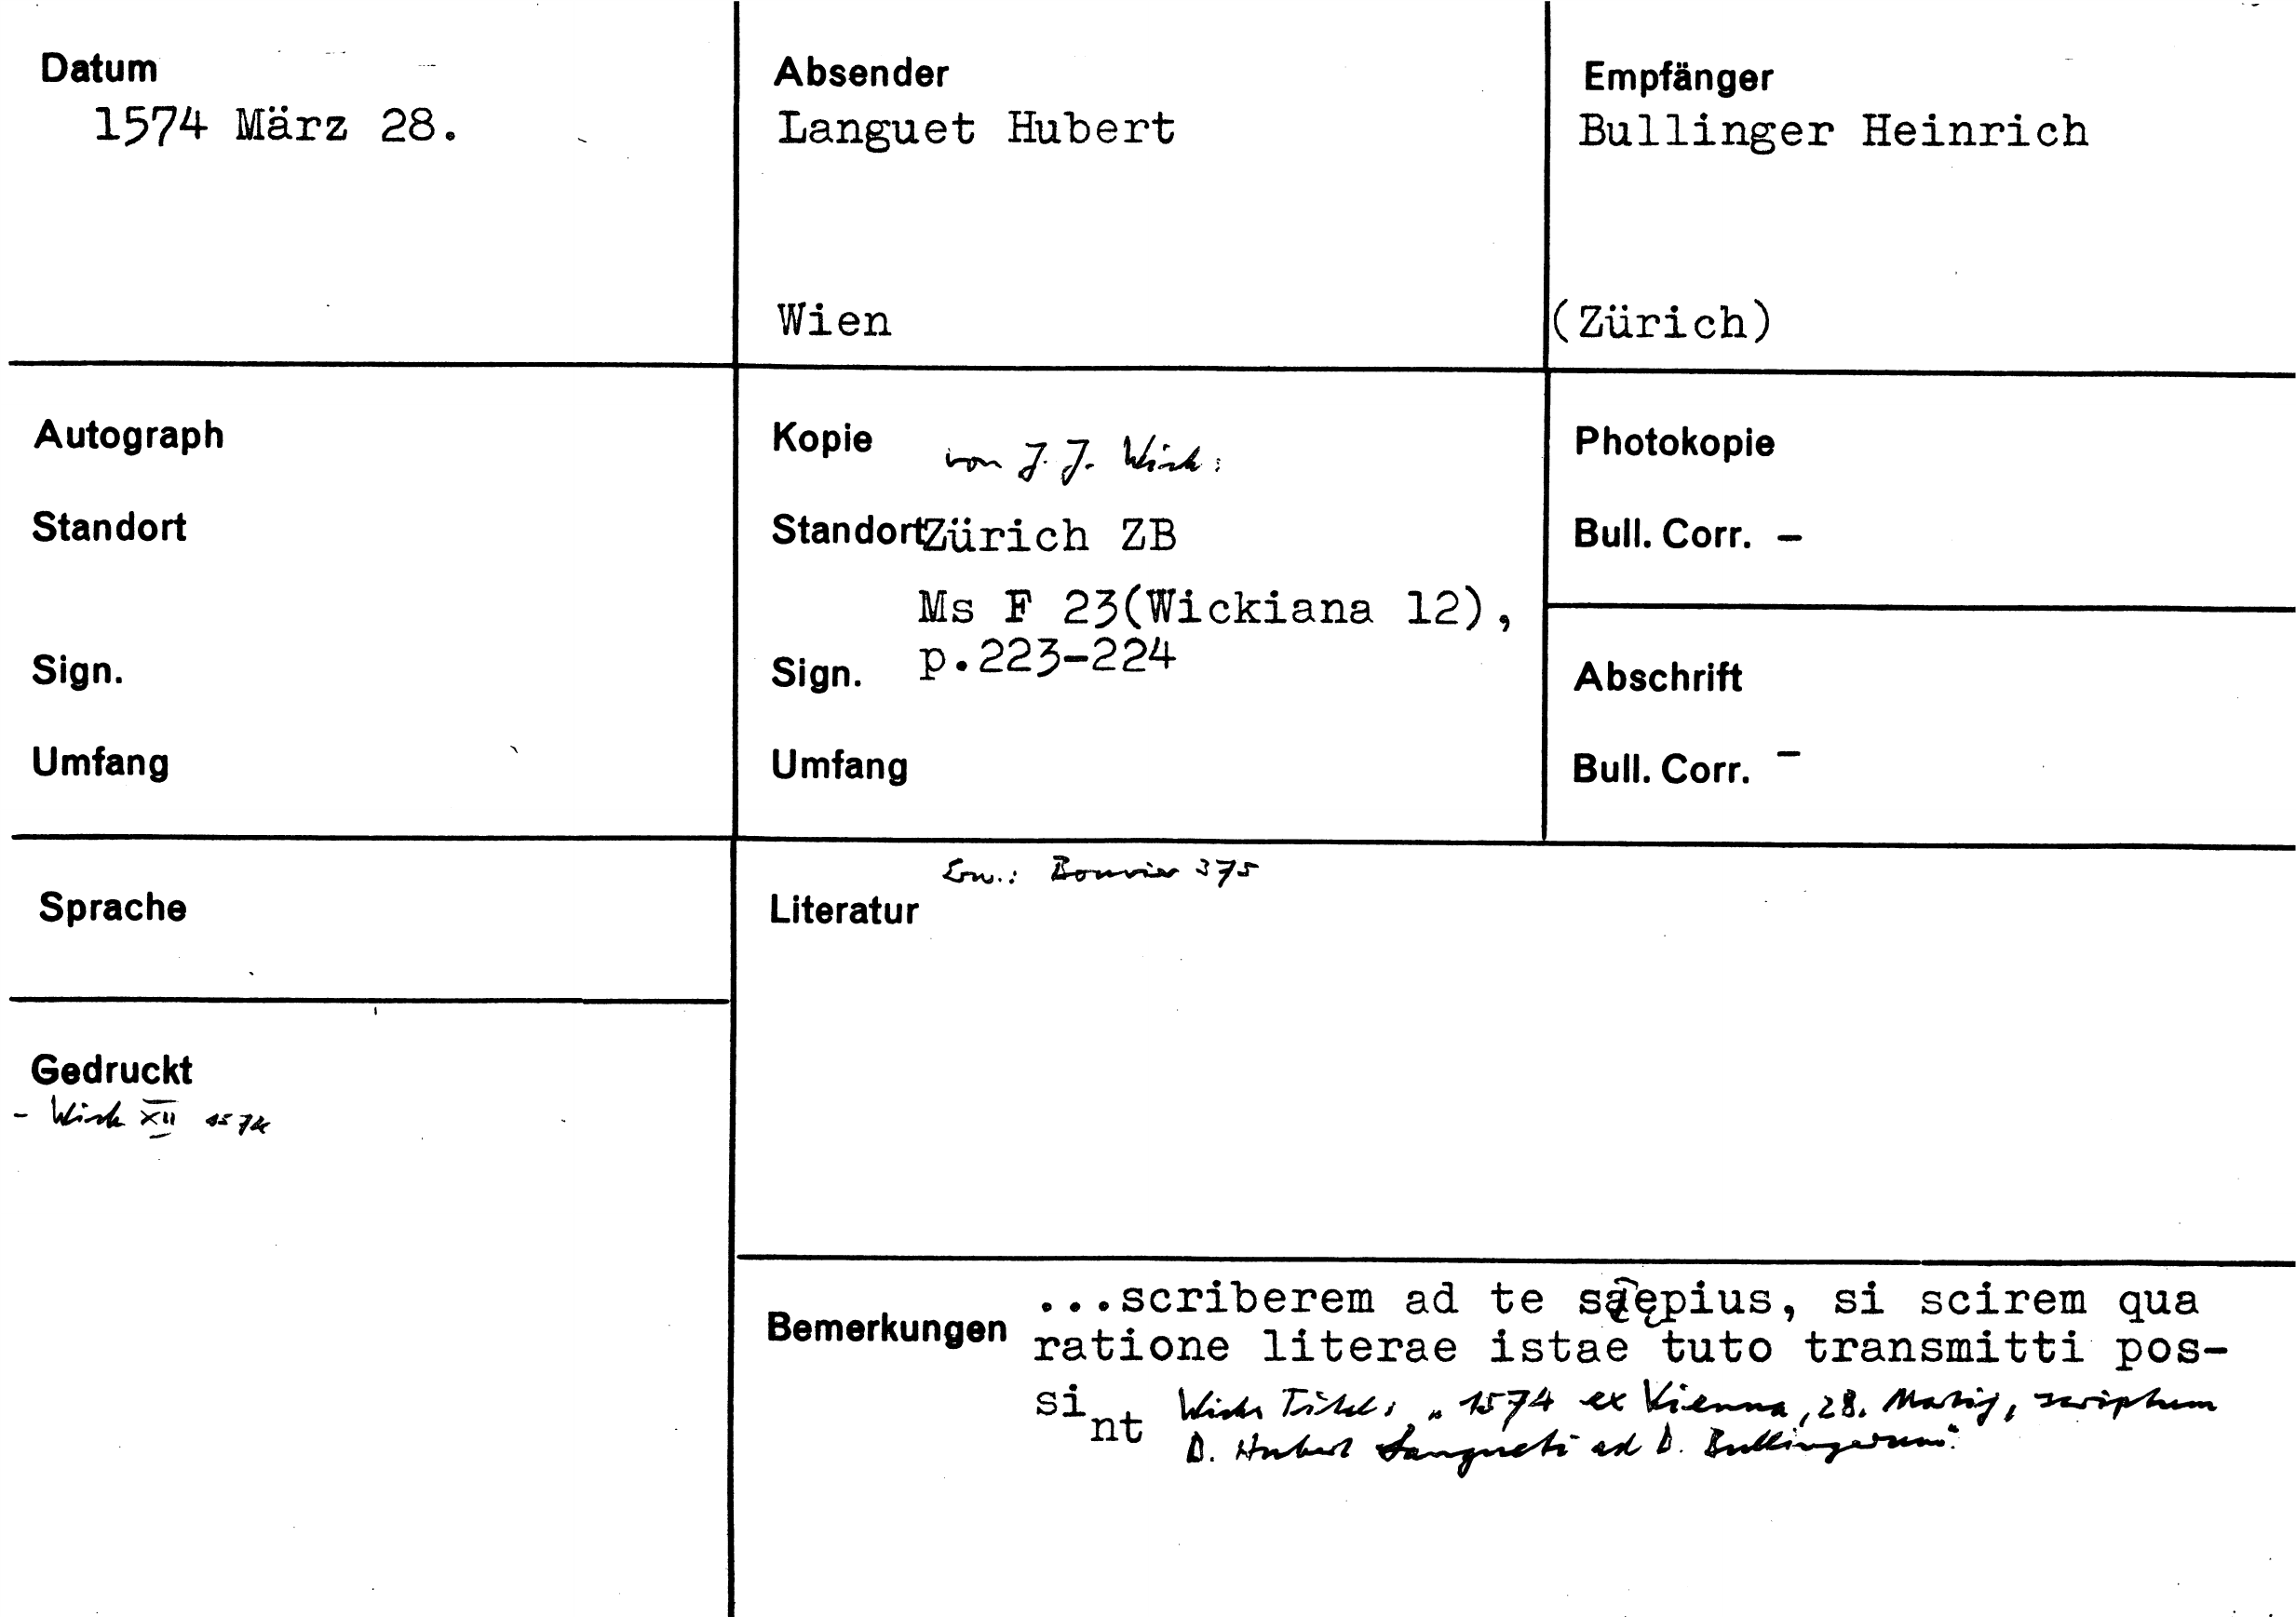 Datum
1574 März 28.
Absender
Languet Hubert
Wien
Empfänger
Bullinger Heinrich
(Zürich)
Autograph
Standort
Sign.
Umfang
Kopie von J. J. Wick:
Standort Zürich ZB
Ms F 23(Wickiana 12),
Sign. p.223-224
Umfang
Photokopie
Bull. Corr. –
Abschrift
Bull. Corr. –
Sprache
Gedruckt
- Wick XII 1574
Erw.: Bouvier 375
Literatur
Bemerkungen
...scriberem ad te saepius, si scirem qua
ratione literae istae tuto transmitti pos-
sint Wicks Titel: „1574 ex Vienna, 28. Martij, scriptum
D. Hubert Langueti ad D. Bullingerum."